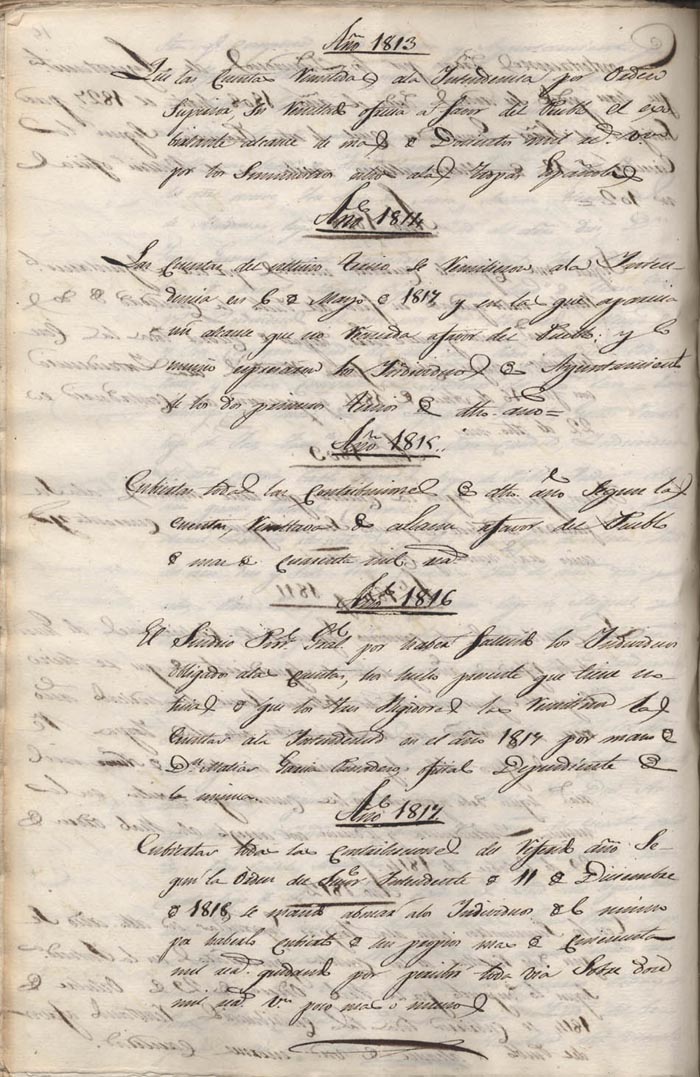 Año 1813
En las Cuentas remitidas a la Intendencia por Orden
Superior, su resultado ofrecia a favor del Pueblo el ex
alcance de mas de Doscientos mil r.s v.n
por los Suministros a las tropas Españolas
Año 1814
Las Cuentas del ultimo tercio se remitieron a la Inten-
dencia en 6 de Mayo de 1817 y en la que aparecia
un alcance que no a favor del Pueblo: y lo
mismo los Individuos de Ayuntamiento
de los dos primeros tercios de dho. año=
Año 1815.
Cubiertas todas las Contribuciones de dho. año segun las
cuentas, resultava de alcance a favor del Pueblo
de mas de Cuarenta mil r.s
Año 1816
El Sindico Por.l Gral. por haber fallecido los Individuos
obligados a las Cuentas, ha hecho presente que tiene no-
ticias de que los tres Señores las remitieron las
Cuentas a la Intendencia en el año 1817 por mano de
D.n Matias Garcia oficial Dependiente de
la misma.
Año 1817
Cubiertas todas las Contribuciones del año Se-
gun la Orden del Señor Intendente de 11 de Diciembre
de 1818, se mandó abonar a los Individuos del mismo
pr haberlo cubierto de sus propios mas de Cincuenta
mil r.s quedando por percibir toda via Sobre doce
mil r.s v.n poco mas o menos